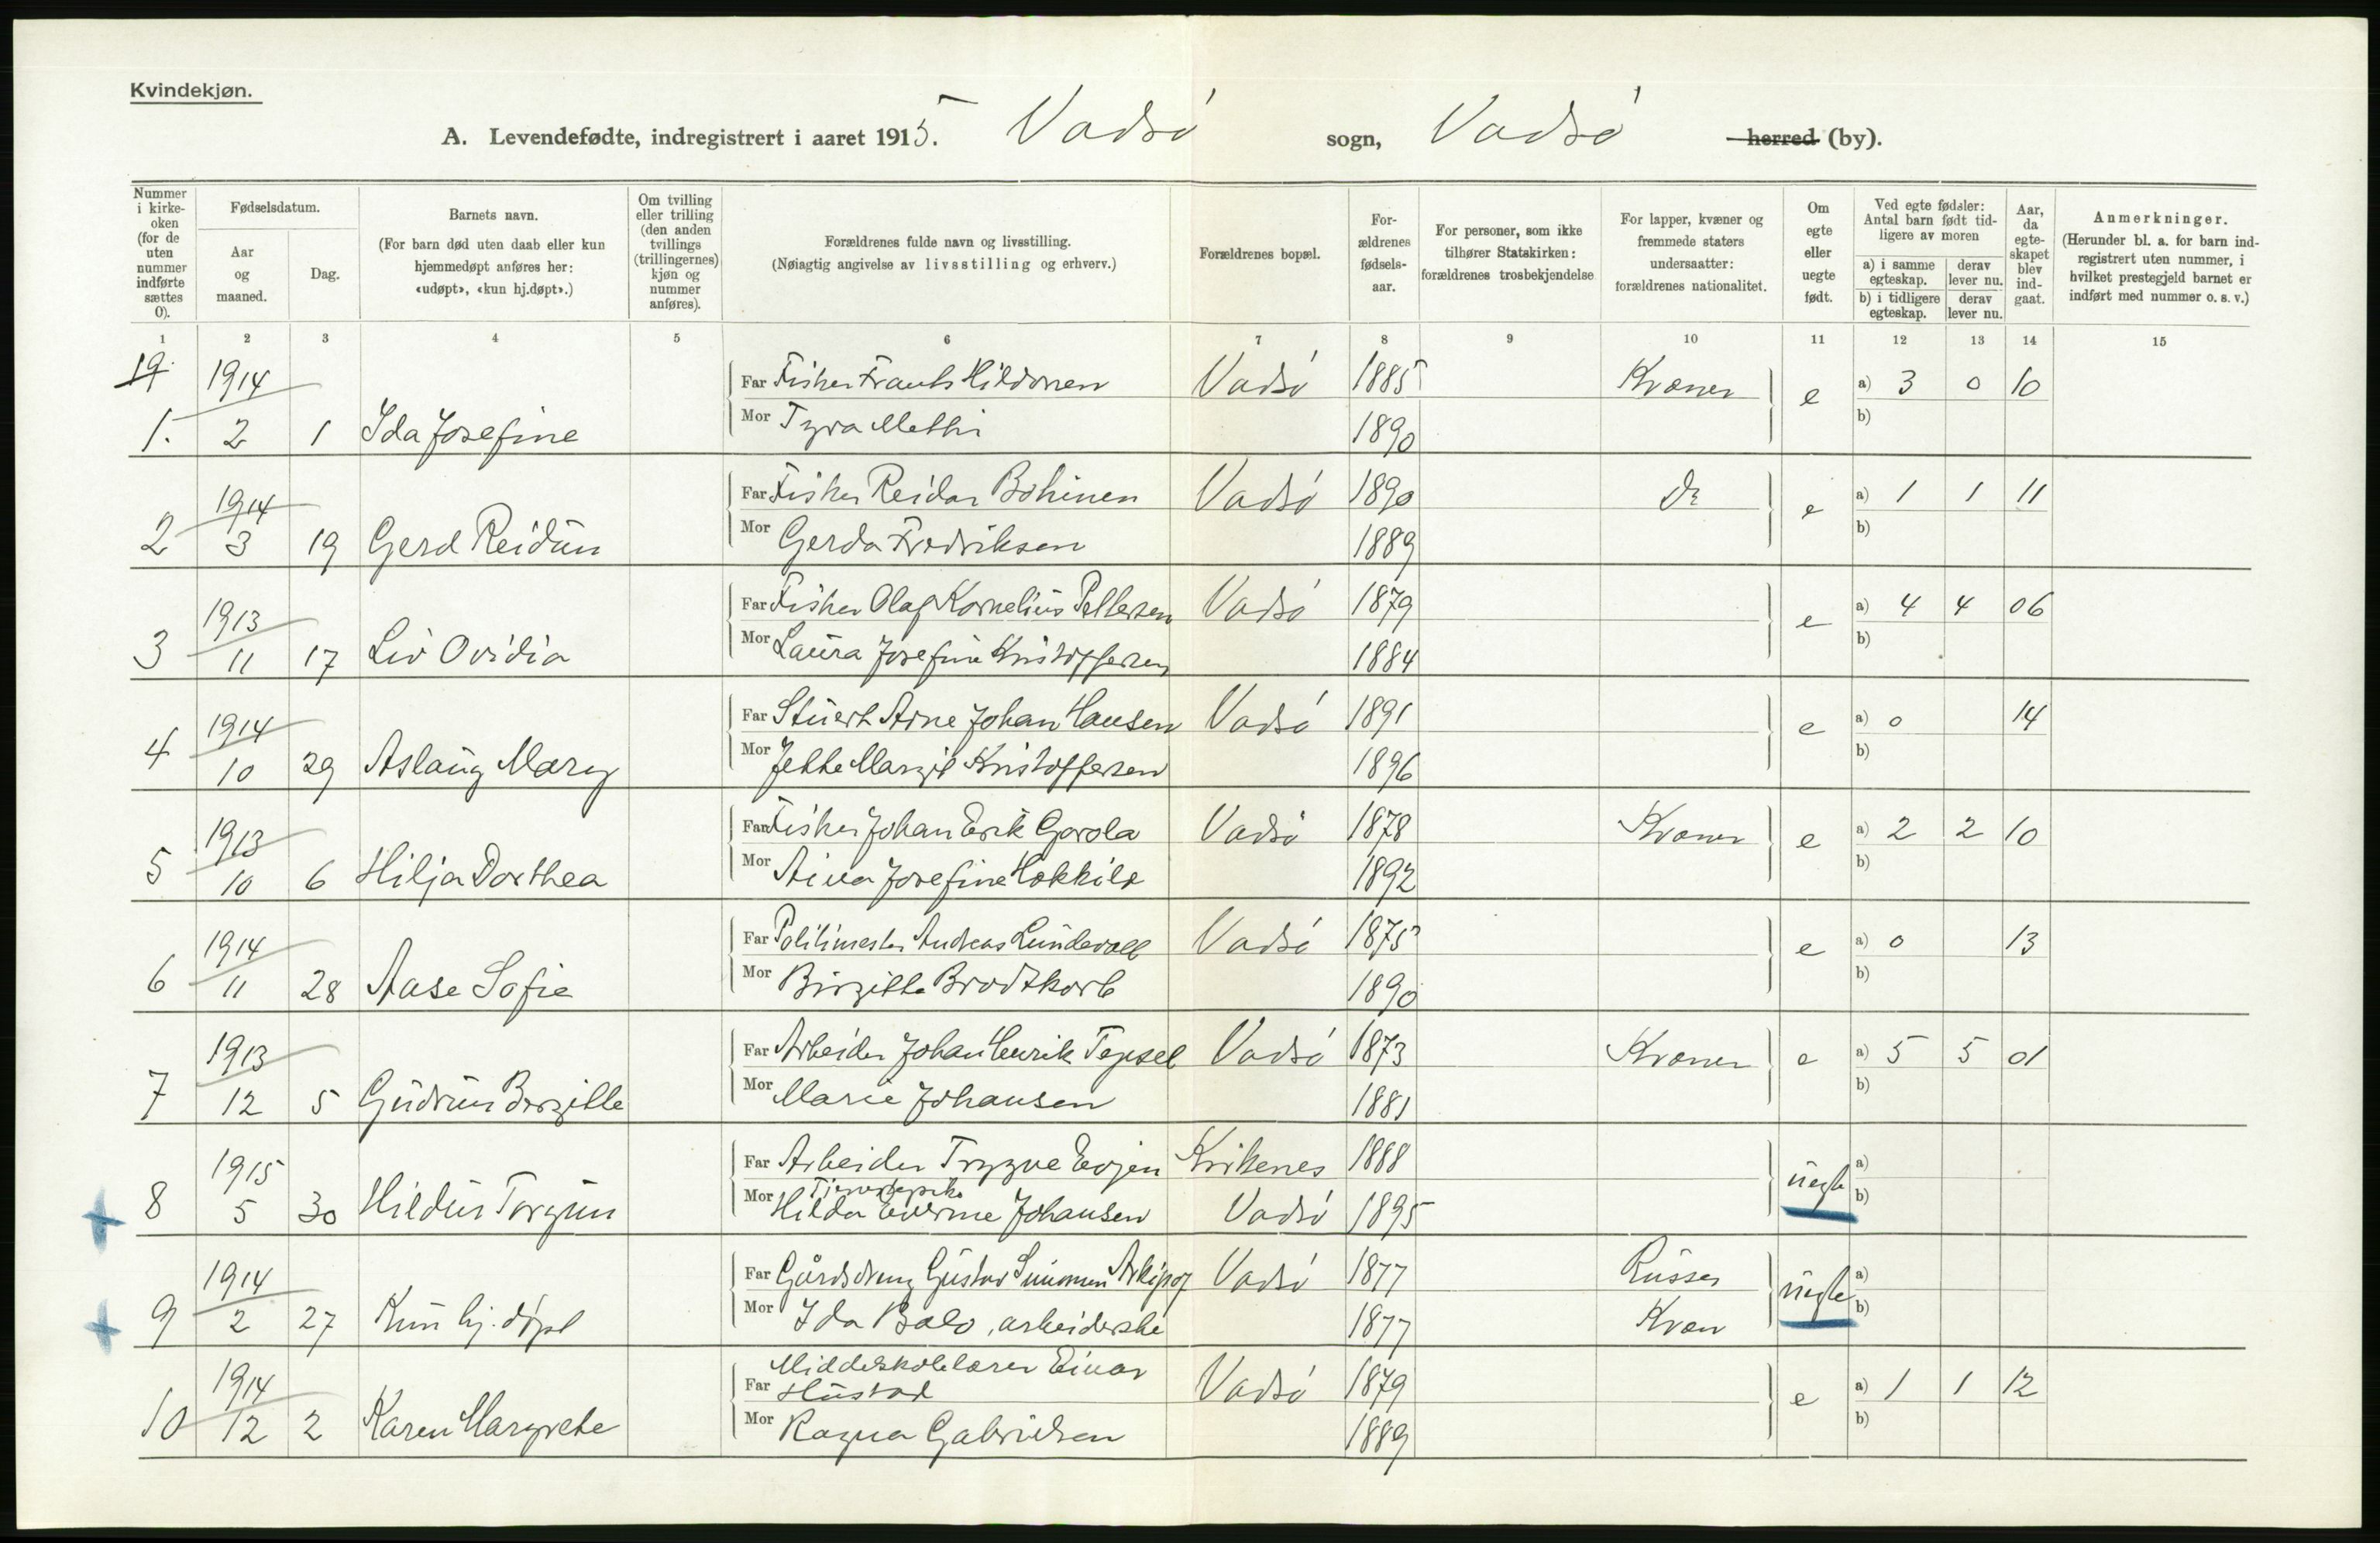 Kvindekjøn.
A. Levendefødte, indregistrert i aaret 1915. Vadsö sogn, Vadsö herred (by).
Nummer i kirke-oken (for de uten nummer indførte sættes 0).
Fødselsdatum.
Aar og maaned.
Dag.
Barnets navn.
(For barn død uten daab eller kun hjemmedøpt anføres her: «udøpt», «kun hj.døpt».)
Om tvilling eller trilling (den anden tvillings (trillingernes) kjøn og nummer anføres).
Forældrenes fulde navn og livsstilling.
(Nøiagtig angivelse av livsstilling og erhverv.)
Forældrenes bopæl.
For-ældrenes fødsels-aar.
For personer, som ikke tilhører Statskirken: forældrenes trosbekjendelse
For lapper, kvæner og fremmede staters undersaatter: forældrenes nationalitet.
Om egte eller uegte født.
Ved egte fødsler: Antal barn født tid-ligere av moren
a) i samme egteskap.
derav lever nu.
b) i tidligere egteskap.
derav lever nu.
Aar, da egte-skapet blev ind-gaat.
Anmerkninger.
(Herunder bl. a. for barn ind-registrert uten nummer, i hvilket prestegjeld barnet er indført med nummer o. s. v.)
1 2 3 4 5 6 7 8 9 10 11 12 13 14 15
19. 1914 Far Fisker Frants Hildonen Vadsö 1885 Kvæner e a) 3 0 10
1. 2 1 Ida Josefine Mor Tyra Mathi 1890 b)
1914 Far Fisker Reidar Bohinen Vadsö 1890 do e a) 1 1 11
2 3 19 Gerd Reidun Mor Gerda Fredriksen 1889 b)
1913 Far Fisker Olaf Kornelius Pettersen Vadsö 1879 e a) 4 4 06
3 11 17 Liv Ovidia Mor Laura Josefine Kristoffersen 1884 b)
1914 Far Stuert Arne Johan Hansen Vadsö 1891 e a) 0 14
4 10 29 Aslaug Mary Mor Jette Margit Kristoffersen 1896 b)
1913 Far Fisker Johan Erik Gorola Vadsö 1878 Kvæner e a) 2 2 10
5 10 6 Hilja Dorthea Mor Aina Josefine Hokkila 1892 b)
1914 Far Politimester Andreas Lundevall Vadsö 1875 e a) 0 13
6 11 28 Aase Sofie Mor Birgitte Brodtkorb 1890 b)
1913 Far Arbeider Johan Henrik Tepsel Vadsö 1873 Kvæner e a) 5 5 01
7 12 5 Gudrun Bergitte Mor Marie Johansen 1881 b)
1915 Far Arbeider Trygve Evjen Kirkenes 1888 uegte a)
8 5 30 Hildur Torgun Mor Tjenestepike Hilda Johansen Vadsö 1895 b)
1914 Far Gårdsdreng Gustav Arkipof Vadsö 1877 Russer uegte a)
9 2 27 Kun hj. døpt Mor Ida Balo, arbeiderske 1877 Kvæn b)
1914 Far Middelskolelærer Einar Hustad Vadsö 1879 e a) 1 1 12
10 12 2 Karen Margrethe Mor Ragna Gabrielsen 1889 b)